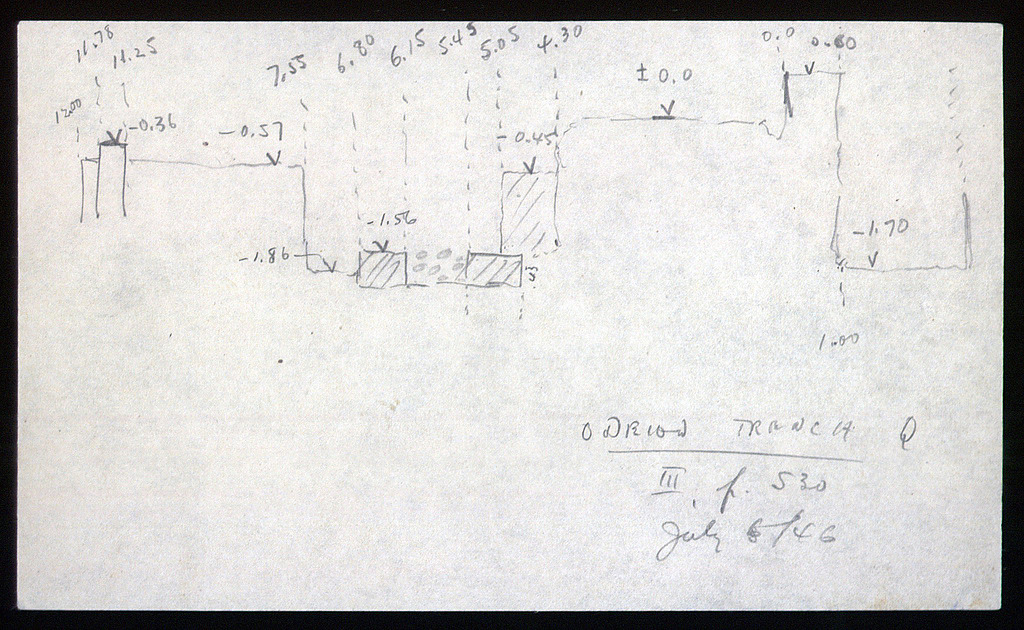 12.00 11.78 11.25 7.55 6.80 6.15 5.45 5.05 4.30 0.0 0.60
± 0.0
-0.36 -0.57 -0.45
-1.56
-1.86 -1.70
1.00
ODEION TRENCH Q
III, p. 530
July /46